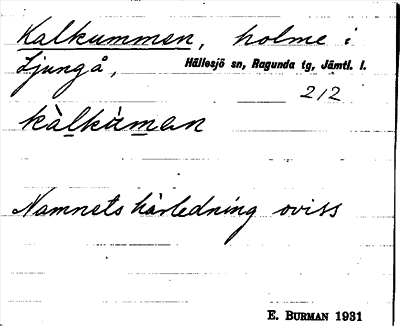 Kalkummen, holme i
Ljungå, Hällesjö sn, Ragunda tg, Jämtl. l.
2/2
kàlkùman
Namnets härledning oviss
E. BURMAN 1931